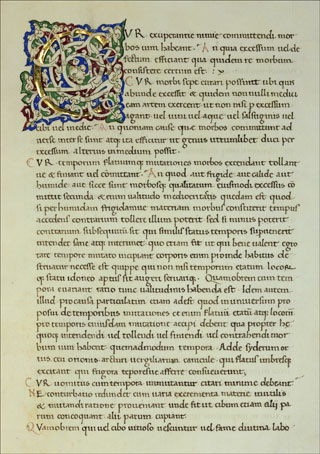 VR exuperantie nimie committendi mor
bos uim habeant. An quia excessum uel de
fectum efficiant qua quidem re morbum
consistere certum est:
VR morbi sepe curari possint ubi quis
abunde excessit & quidem nonnulli medici
eam artem exercent ut non nisi per excessum
agant uel uini uel aque uel salsuginis uel
cibi uel inedie An quoniam cause que morbos committunt ad
uerse inter se sunt atque ita efficitur ut genus utrumlibet duci per
excessum alterius in medium possit.
CVR temporum flatuumque mutationes morbos extendant tollant
ue & finiant uel committant. An quod aut frigide aut calide aut
humide aut sicce sunt morbosque qualitatum eiusmodi excessus co
mittit secunda & eum ualitudo mediocritatis quedam est quod
si per humidam frigidamue materiam morbus constiterit tempus
accedens contrarium tollere illum poterit sed si minus poterit
contrarium subsequi
interdet sane atque interimet quo etiam fit ut qui bene ualent egro
tare tempore mutato incipiant corpus enim proinde habitus de
seruatur necesse est quippe qui non nisi temporum etatum locorum
que statu idoneo aptus sit augeri seruarique. Quamobrem cum tem
pora euariant ratio tunc ualitudinis habenda est Idem autem
illud pro causa particulatim etiam adest quod in uniuersum pro
posui de temporibus mutationes etenim flatuum etatum atque locorum
pro temporis eiusdem mutatione accipi deberit qua propter he
quoque intendendi uel tollendi uel finiendi uel contrahendi mor
bum uim habent quemadmodum tempora Adde syderum or
tus ceu orionis arcturi uergiliarum canicule qui flatus imbresque
excitant qui frigora teporesque afferre consueuerunt.
CVR uomitus cum tempora immutantur citari minime debeant
NE conturbatio redundet cum uaria excrementa materie inutilis
& mutandi ratione proueniant unde fit ut cibum etiam alii pa
rum concoquant alii parum cupiant
QVamobrem qui uel cibo uitioso uescuntur uel fame diutina labo